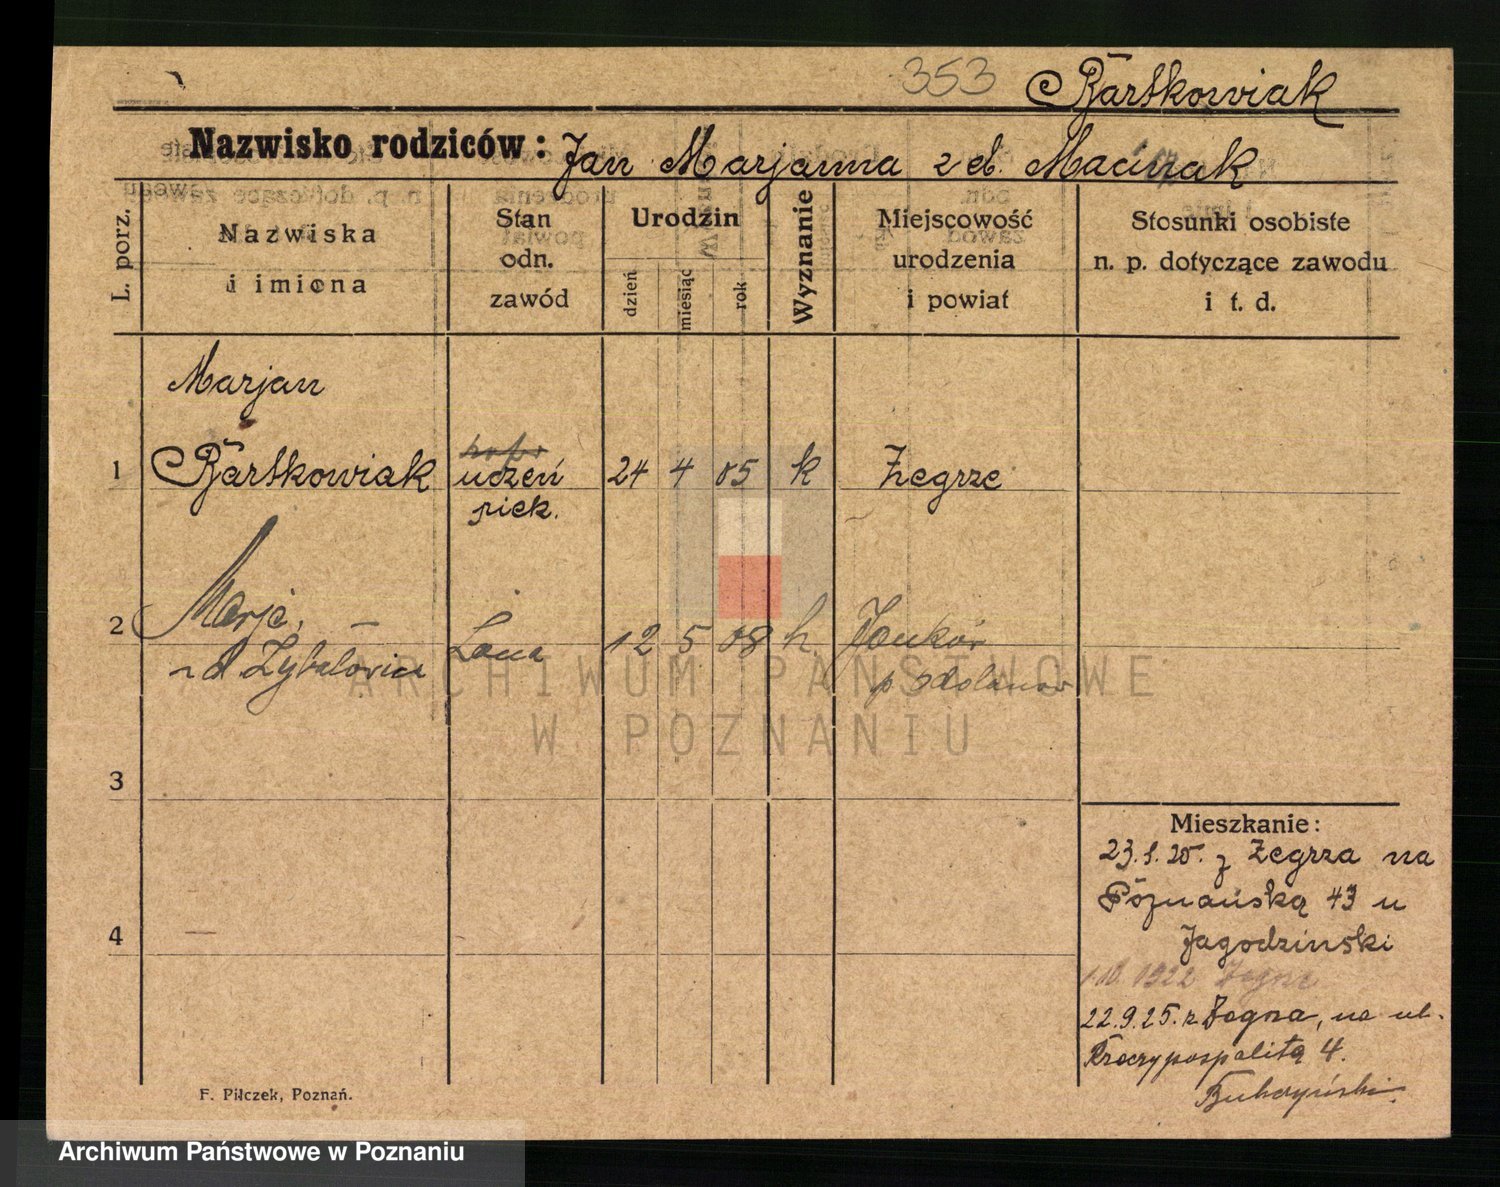 353 Bartkowiak
Nazwisko rodziców: Jan Marjanna z d. Maćńak
L. porz.
Nazwiska
i imiona
Stan
odn.
zawód
Urodzin
dzień
miesiąc
rok
Wyznanie
Miejscowość
urodzenia
i powiat
Stosunki osobiste
n. p. dotyczące zawodu
i t. d.
Marjan
1 Bartkowiak uczeń 24 4 05 k Zegrze
piek.
2 Marja, 12 5 08 k.
p Odolanów
3
4
Mieszkanie:
23.1.20. z Zegrza na
Poznańską 43 u
Jagodzinski
1.10.1922
22.9.25. z na ul.
Rzeczypospolitą 4.
F. Pilczek, Poznań.
ARCHIWUM PAŃSTWOWE
W POZNANIU
Archiwum Państwowe w Poznaniu